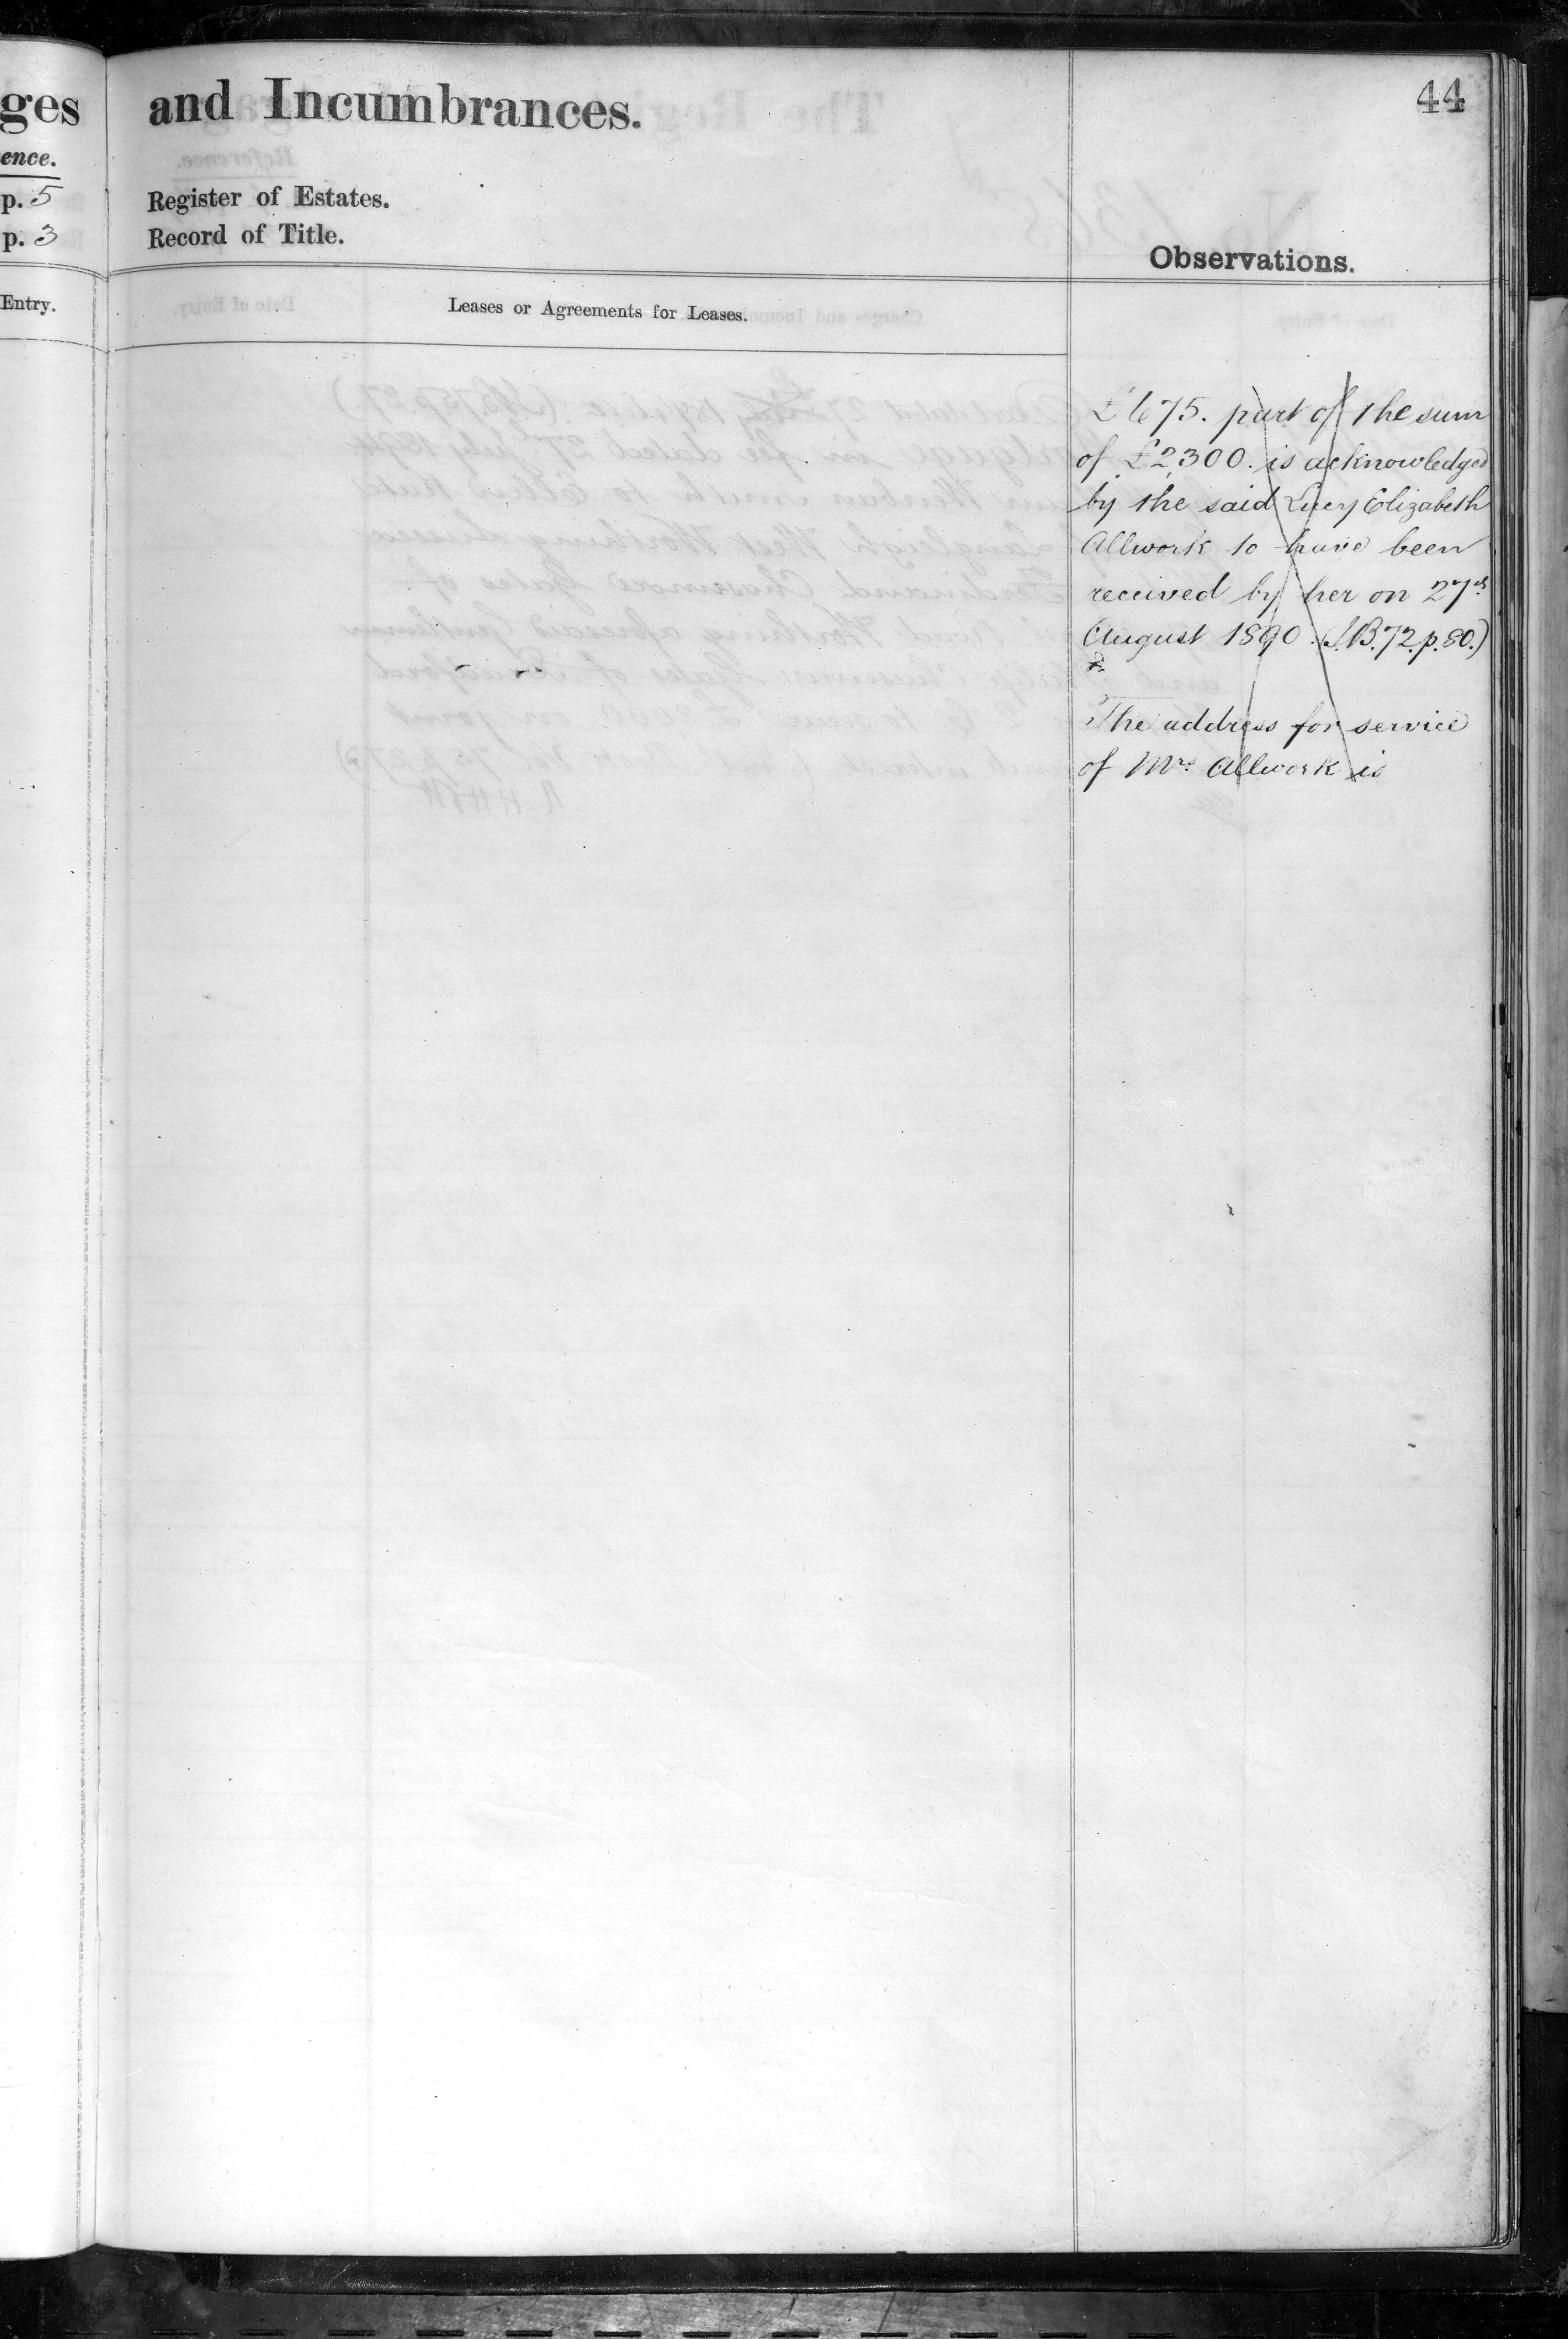 ges
ence.
p. 5
p. 3
Entry.
and Incumbrances.
44
Register of Estates.
Record of Title.
Observations.
Leases or Agreements for Leases.
£675. part of the sum
of £2300. is acknowledged
by the said Lucy Elizabeth
Allwork to have been
received by her on 27th
August 1890. (I.B.72.p.80.)
The address for service
of Mrs Allwork is